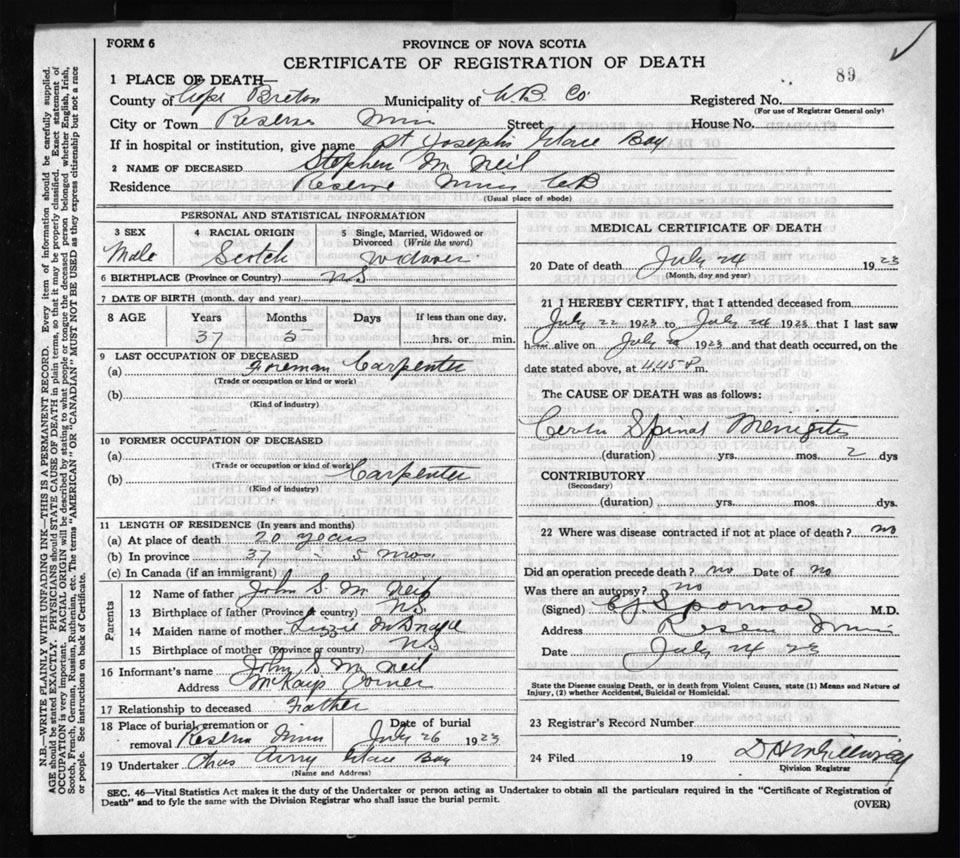 FORM 6
PROVINCE OF NOVA SCOTIA
CERTIFICATE OF REGISTRATION OF DEATH
89
1 PLACE OF DEATH
County of Cape Breton Municipality of C.B. Co Registered No.
(For use of Registrar General only)
City or Town Reserve Mines Street House No.
If in hospital or institution, give name St Josephs Glace Bay
2 NAME OF DECEASED Stephen Mc Neil
Residence Reserve Mines CB
(Usual place of abode)
PERSONAL AND STATISTICAL INFORMATION
3 SEX 4 RACIAL ORIGIN 5 Single, Married, Widowed or Divorced (Write the word)
Male Scotch Widower
6 BIRTHPLACE (Province or Country) N.S
7 DATE OF BIRTH (month, day and year)
8 AGE Years Months Days If less than one day,
37 5 hrs. or min.
9 LAST OCCUPATION OF DECEASED
(a) Foreman Carpenter
(Trade or occupation or kind or work)
(b)
(Kind of industry)
10 FORMER OCCUPATION OF DECEASED
(a)
(Trade or occupation or kind of work)
(b) Carpenter
(Kind of industry)
11 LENGTH OF RESIDENCE (In years and months)
(a) At place of death 20 years
(b) In province 37 - 5 mos.
(c) In Canada (if an immigrant)
Parents
12 Name of father John S. Mc Neil
13 Birthplace of father (Province or country) N.S.
14 Maiden name of mother Lizzie
15 Birthplace of mother (Province or country) N.S
16 Informant's name John S. Mc Neil
Address McKays Corner
17 Relationship to deceased Father
18 Place of burial, cremation or removal Reserve Mines Date of burial July 26 1923
19 Undertaker Chas Glace Bay
(Name and Address)
MEDICAL CERTIFICATE OF DEATH
20 Date of death July 24 1923
(Month, day and year)
21 I HEREBY CERTIFY, that I attended deceased from
July 22 1923 to July 24 1923 that I last saw
h alive on July 1923 and that death occurred, on the
date stated above, at 4.45 P m.
The CAUSE OF DEATH was as follows:
Spinal
(duration) yrs. mos. 2 dys
CONTRIBUTORY
(Secondary)
(duration) yrs. mos. dys.
22 Where was disease contracted if not at place of death? no
Did an operation precede death? no Date of no
Was there an autopsy? no
(Signed) M.D.
Address Reserve Mines
Date July 24 23
State the Disease causing Death, or in death from Violent Causes, state (1) Means and Nature of
Injury, (2) whether Accidental, Suicidal or Homicidal.
23 Registrar's Record Number
24 Filed 19
Division Registrar
SEC. 46—Vital Statistics Act makes it the duty of the Undertaker or person acting as Undertaker to obtain all the particulars required in the "Certificate of Registration of
Death" and to fyle the same with the Division Registrar who shall issue the burial permit.
(OVER)
N.B.—WRITE PLAINLY WITH UNFADING INK—THIS IS A PERMANENT RECORD. Every item of information should be carefully supplied.
AGE should be stated EXACTLY. PHYSICIANS should STATE CAUSE OF DEATH in plain terms, so that it may be properly classified. Exact statement of
OCCUPATION is very important. RACIAL ORIGIN will be described by stating to what people or tongue the deceased person belonged whether English, Irish,
Scotch, French, German, Russian, Ruthenian, etc. The terms "AMERICAN" OR "CANADIAN" MUST NOT BE USED as they express citizenship but not a race
or people. See instructions on back of Certificate.